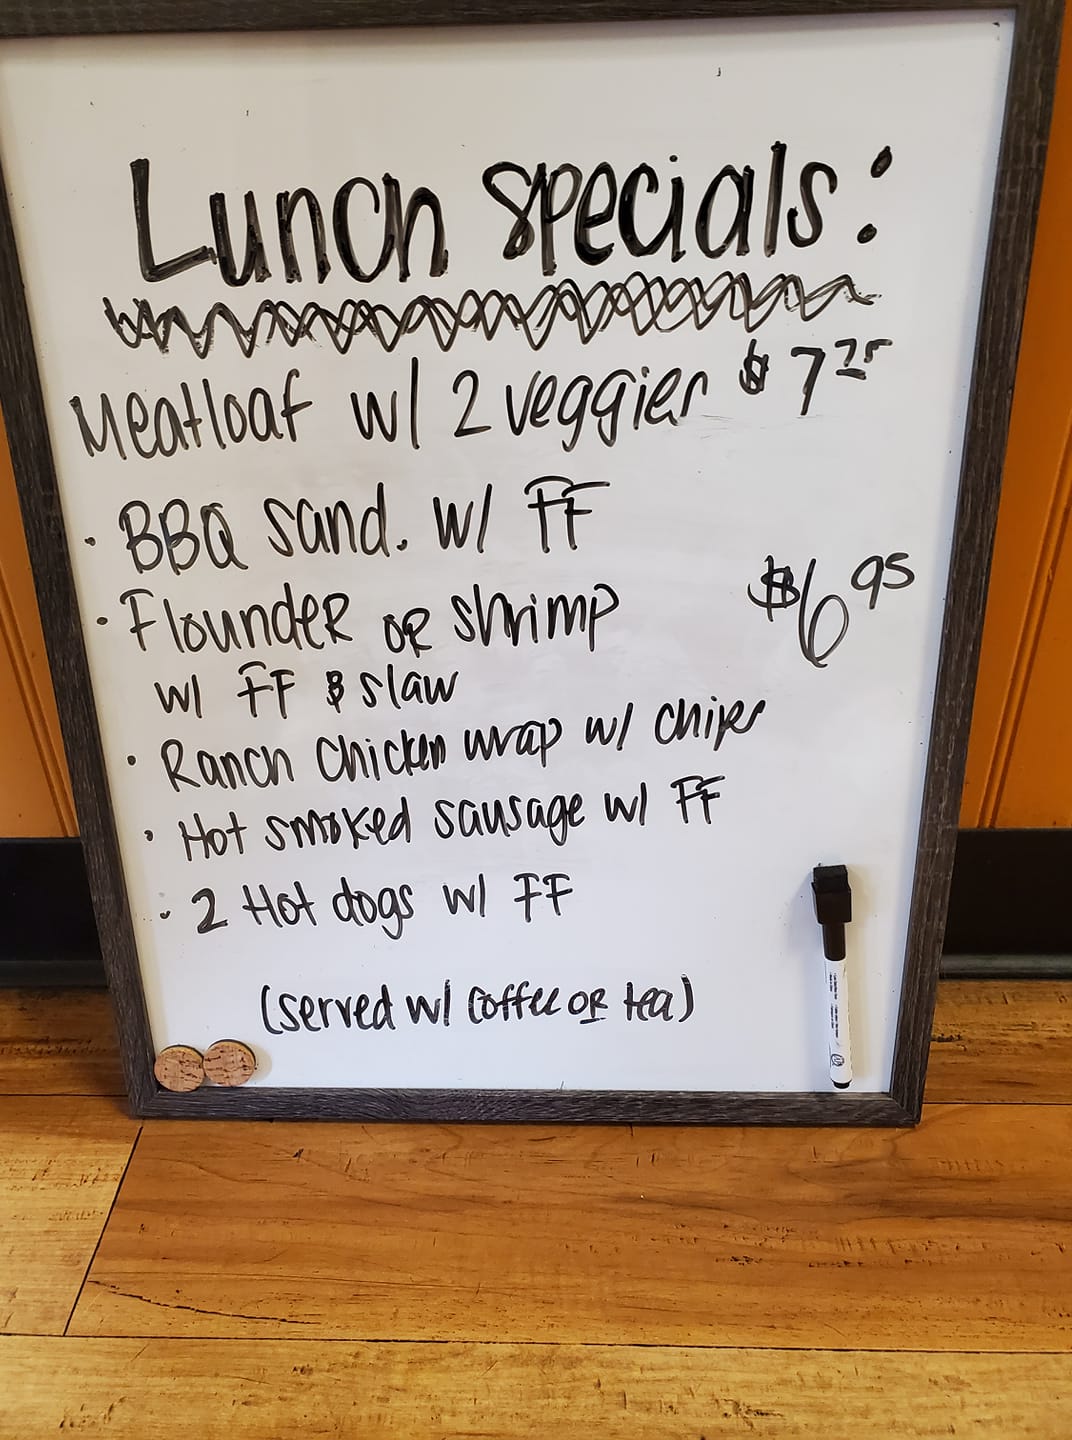 Lunch specials:
Meatloaf w/ 2 veggies $7.25
· BBQ sand. w/ FF
· Flounder or shrimp
$6.95
w/ FF & slaw
· Ranch Chicken wrap w/ chips
· Hot smoked sausage w/ FF
· 2 Hot dogs w/ FF
(served w/ coffee or tea)